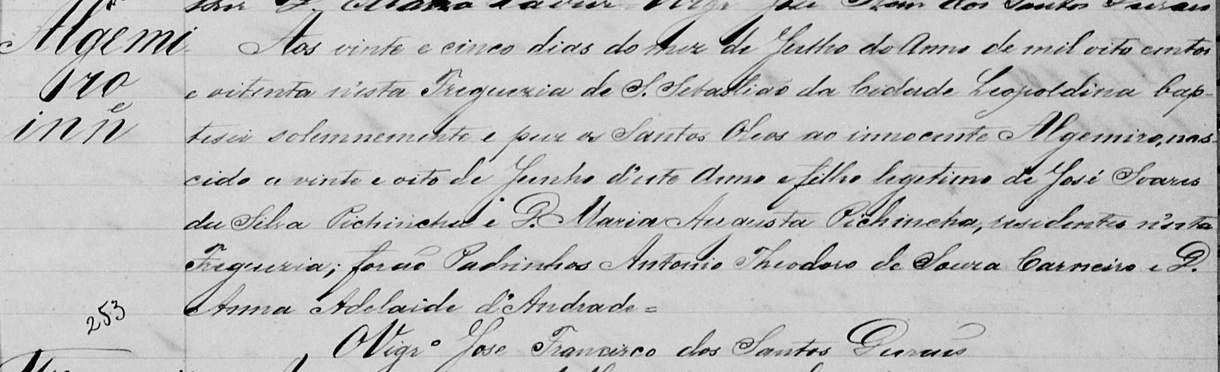 Algemi
ro
inn^e
253
Aos vinte e cinco dias do mez de Julho do Anno de mil oito centos
e oitenta n'esta Freguezia de S. Sebastião da Cidade Leopoldina bap-
tisei solemnemente e puz os Santos Oleos ao innocente Algemiro, nas-
cido a vinte e oito de Junho d'este Anno e filho legitimo de José Soares
da Silva Pichincha e D. Maria Augusta Pichincha, residentes n'esta
Freguezia; forão Padrinhos Antonio Theodoro de Souza Carneiro e D.
Anna Adelaide d'Andrade=
O Vigr.º José Francisco dos Santos Durães